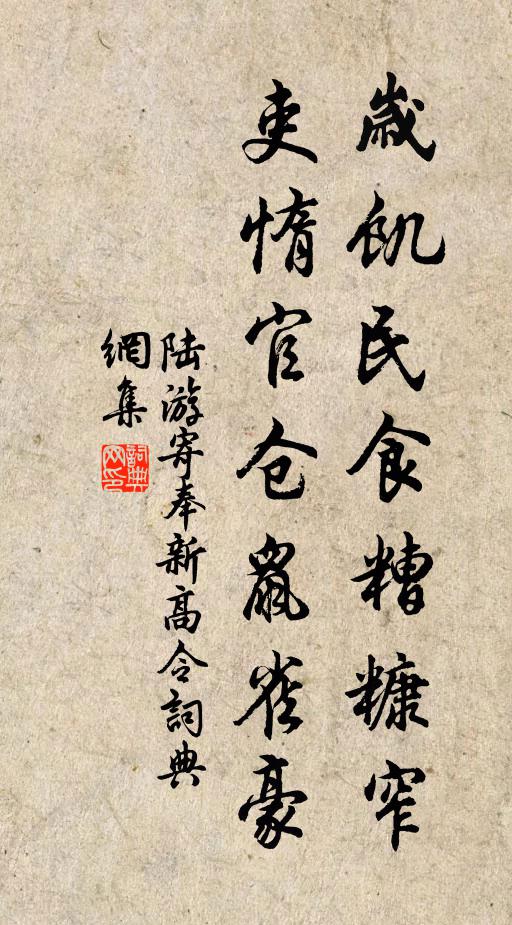 歲飢民食糟糠窄
吏惰官仓鼠雀豪
陆游寄奉新高令詞典
網集
詞典
网印